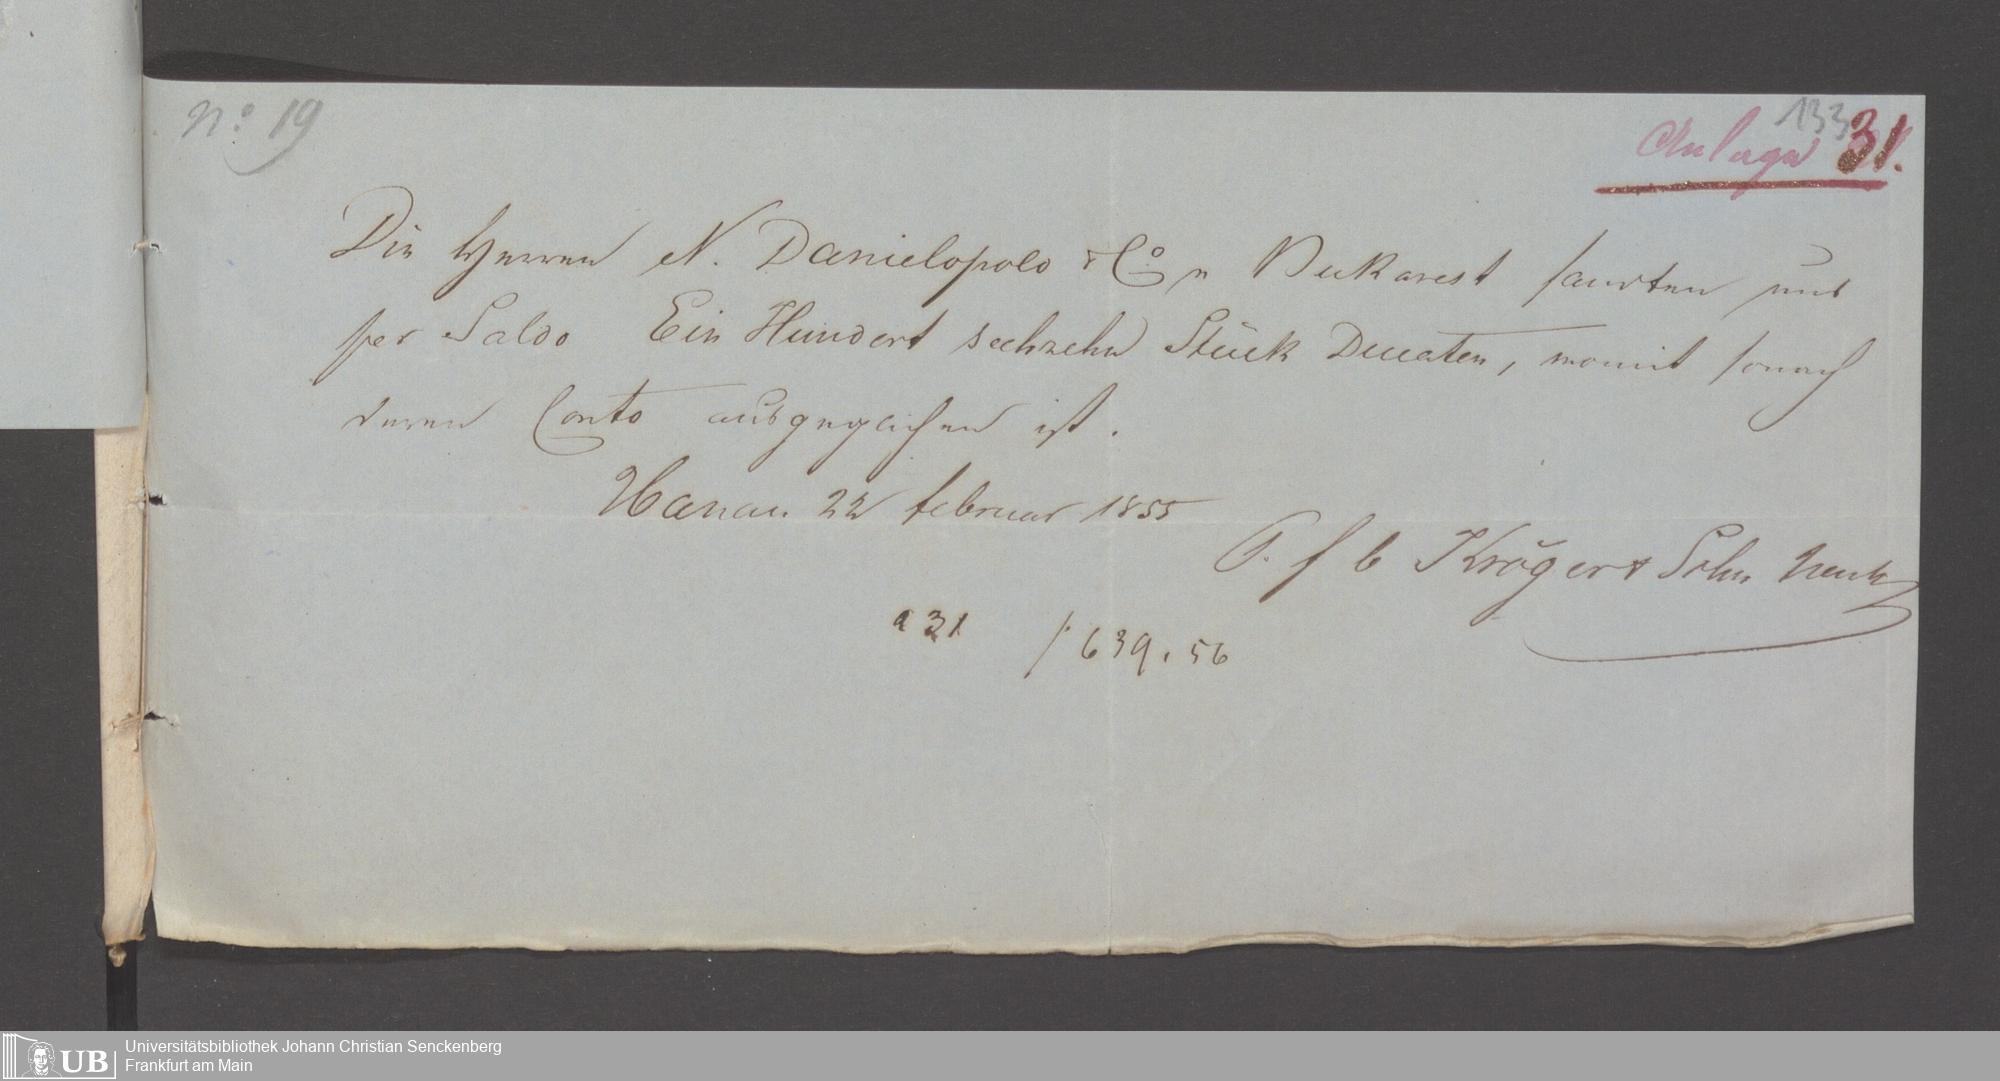 No. 19
133
Anlage 31.
Die Herren N. Danielopolo & Co in Bukarest sandten uns
per Saldo Ein Hundert sechzehn Stück Ducaten, womit sonach
deren Conto ausgeglichen ist.
Hanau 22 februar 1855
Kröger & Sohn
a 31 f 639.56
UB
Universitätsbibliothek Johann Christian Senckenberg
Frankfurt am Main